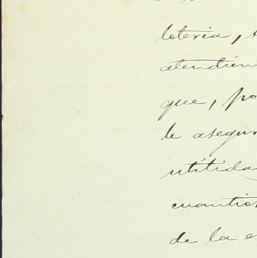 loteria,
atendien
que, po
le asegu
utilida
cuantio
de la e